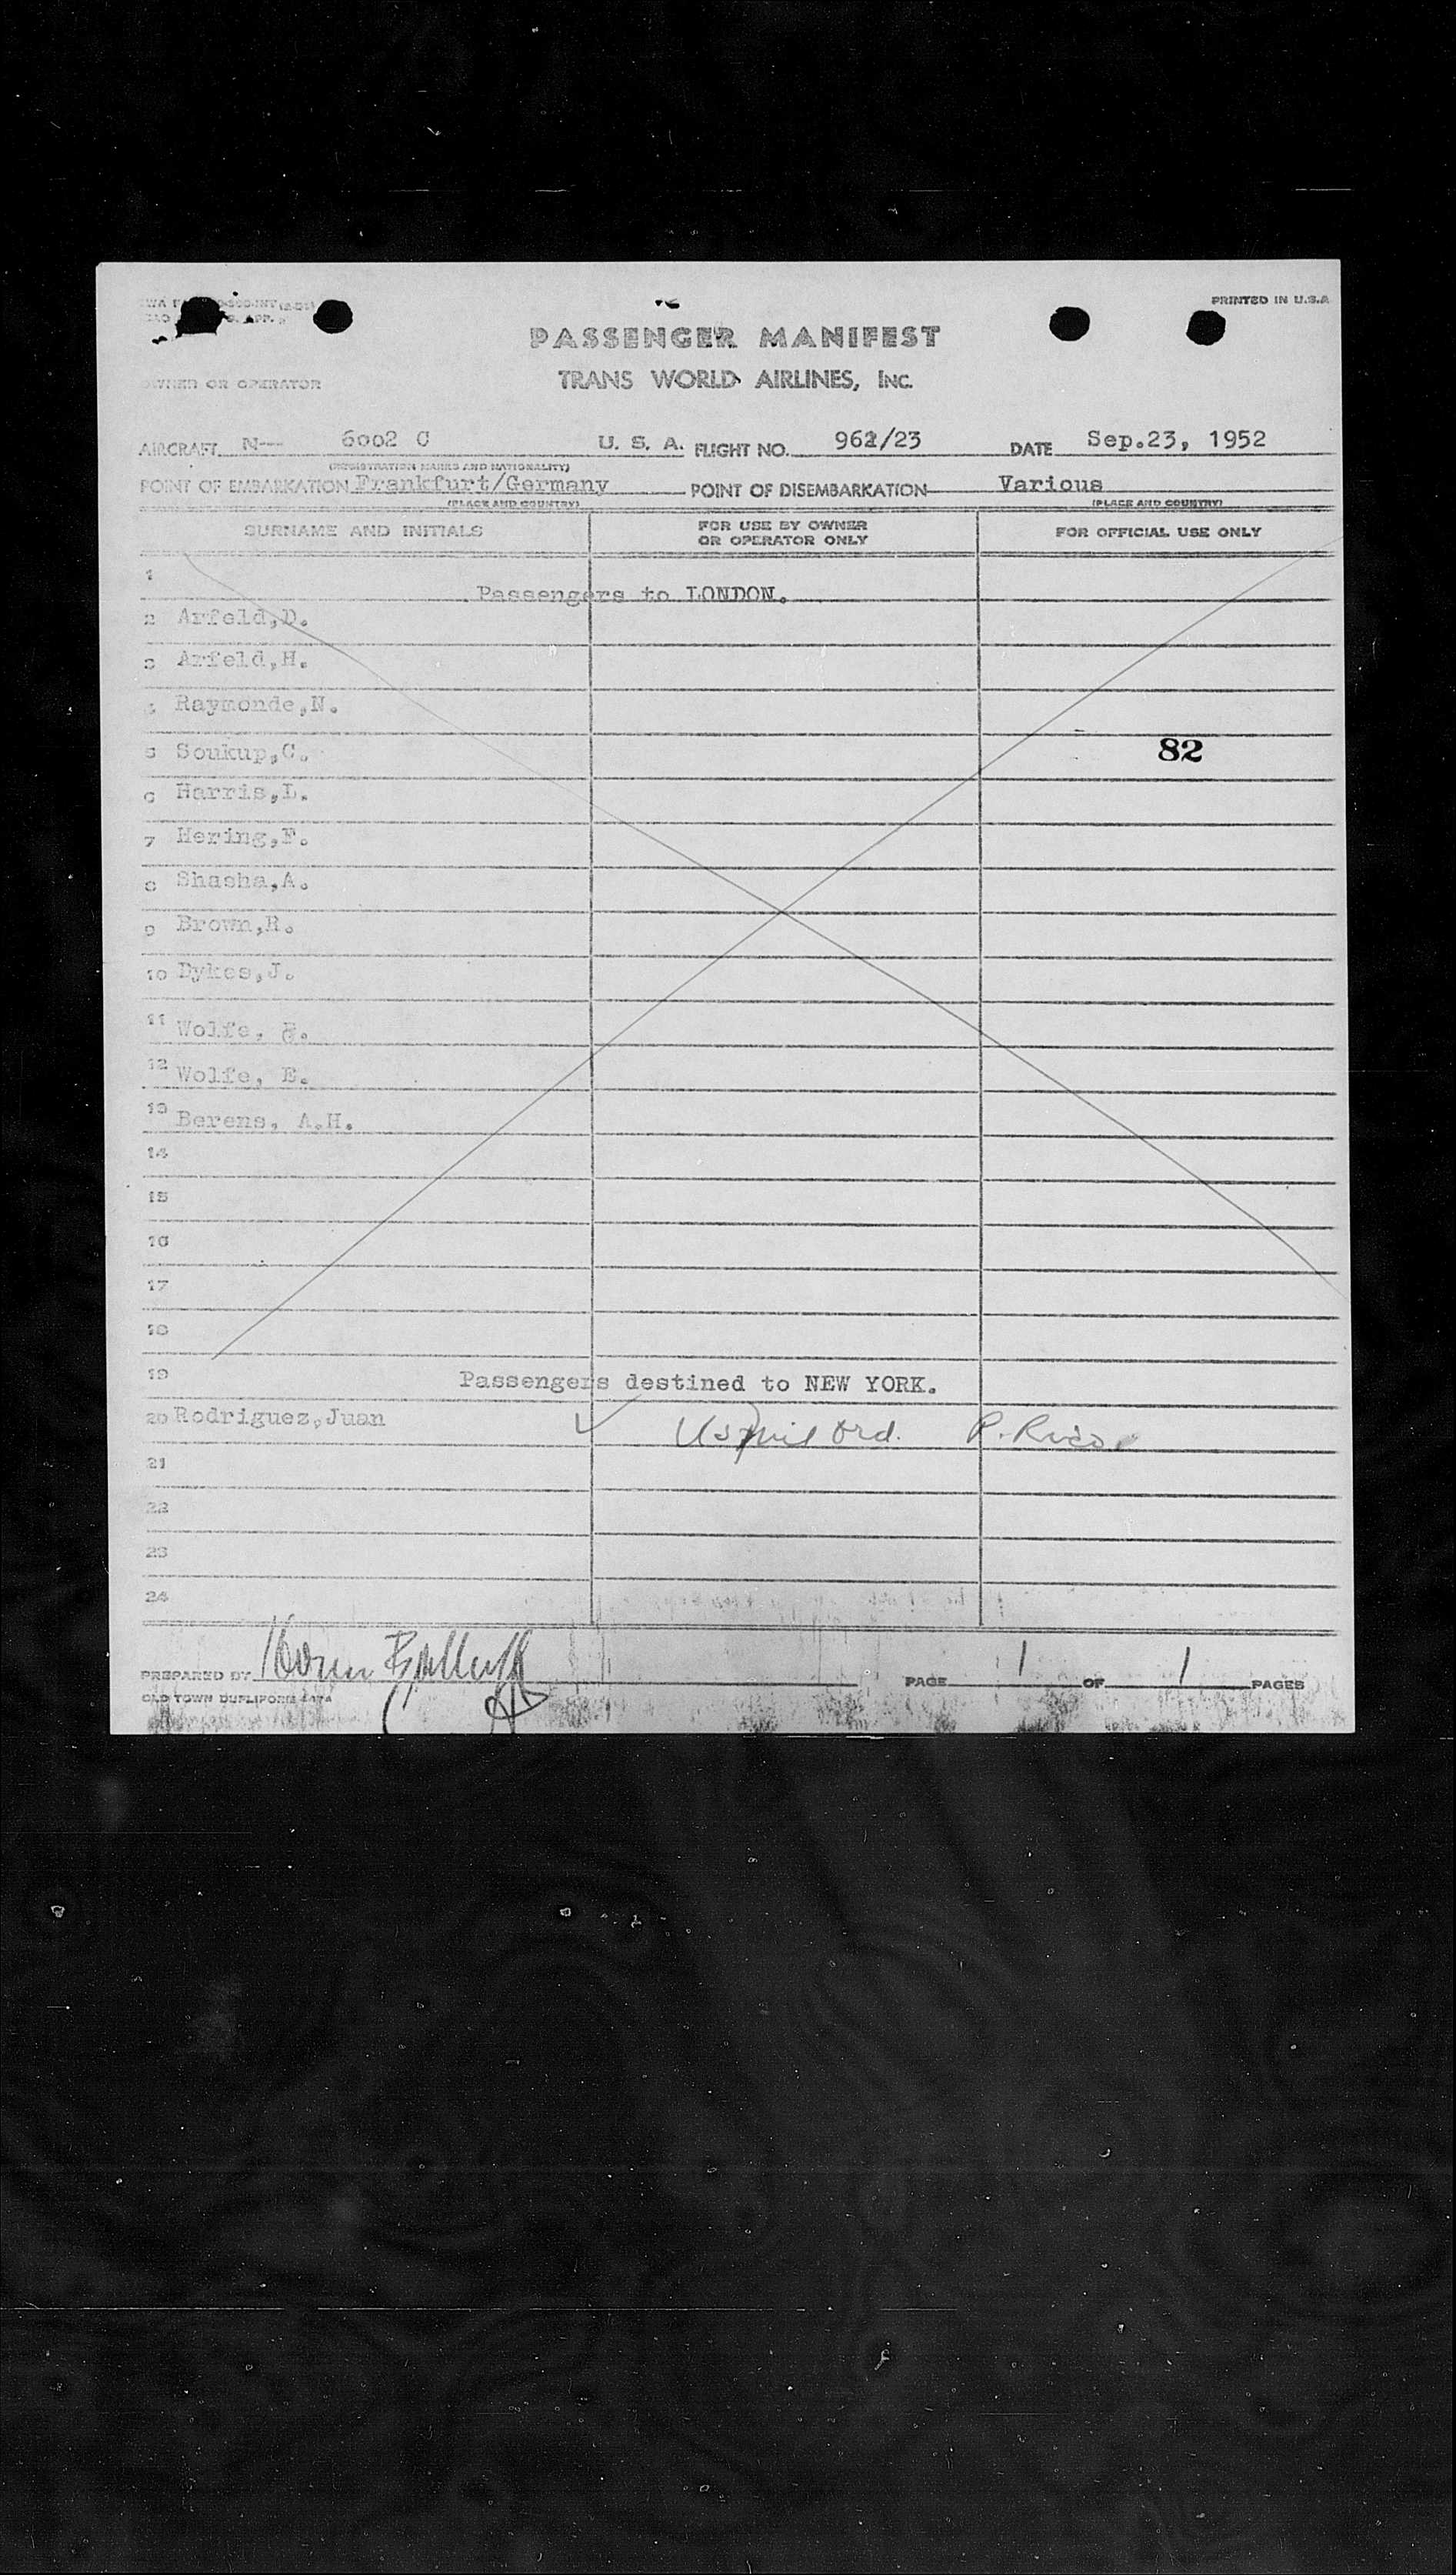 PRINTED IN U.S.A
PASSENGER MANIFEST
OWNER OR OPERATOR TRANS WORLD AIRLINES, INC.
AIRCRAFT N-- 6002 C U. S. A. FLIGHT NO. 962/23 DATE Sep.23, 1952
(REGISTRATION MARKS AND NATIONALITY)
POINT OF EMBARKATION Frankfurt/Germany POINT OF DISEMBARKATION Various
(PLACE AND COUNTRY) (PLACE AND COUNTRY)
SURNAME AND INITIALS FOR USE BY OWNER OR OPERATOR ONLY FOR OFFICIAL USE ONLY
1 Passengers to LONDON.
2 Arfeld,D.
3 Arfeld,H.
4 Raymonde,N.
5 Soukup,C. 82
6 Harris,L.
7 Hering,F.
8 Shasha,A.
9 Brown,R.
10 Dykes,J.
11 Wolfe,
12 Wolfe, E.
13 Berens, A.H.
14
15
16
17
18
19 Passengers destined to NEW YORK.
20 Rodriguez,Juan US mil ord. P. Rico
21
22
23
24
PREPARED BY PAGE 1 OF 1 PAGES
OLD TOWN DUPLIFORM